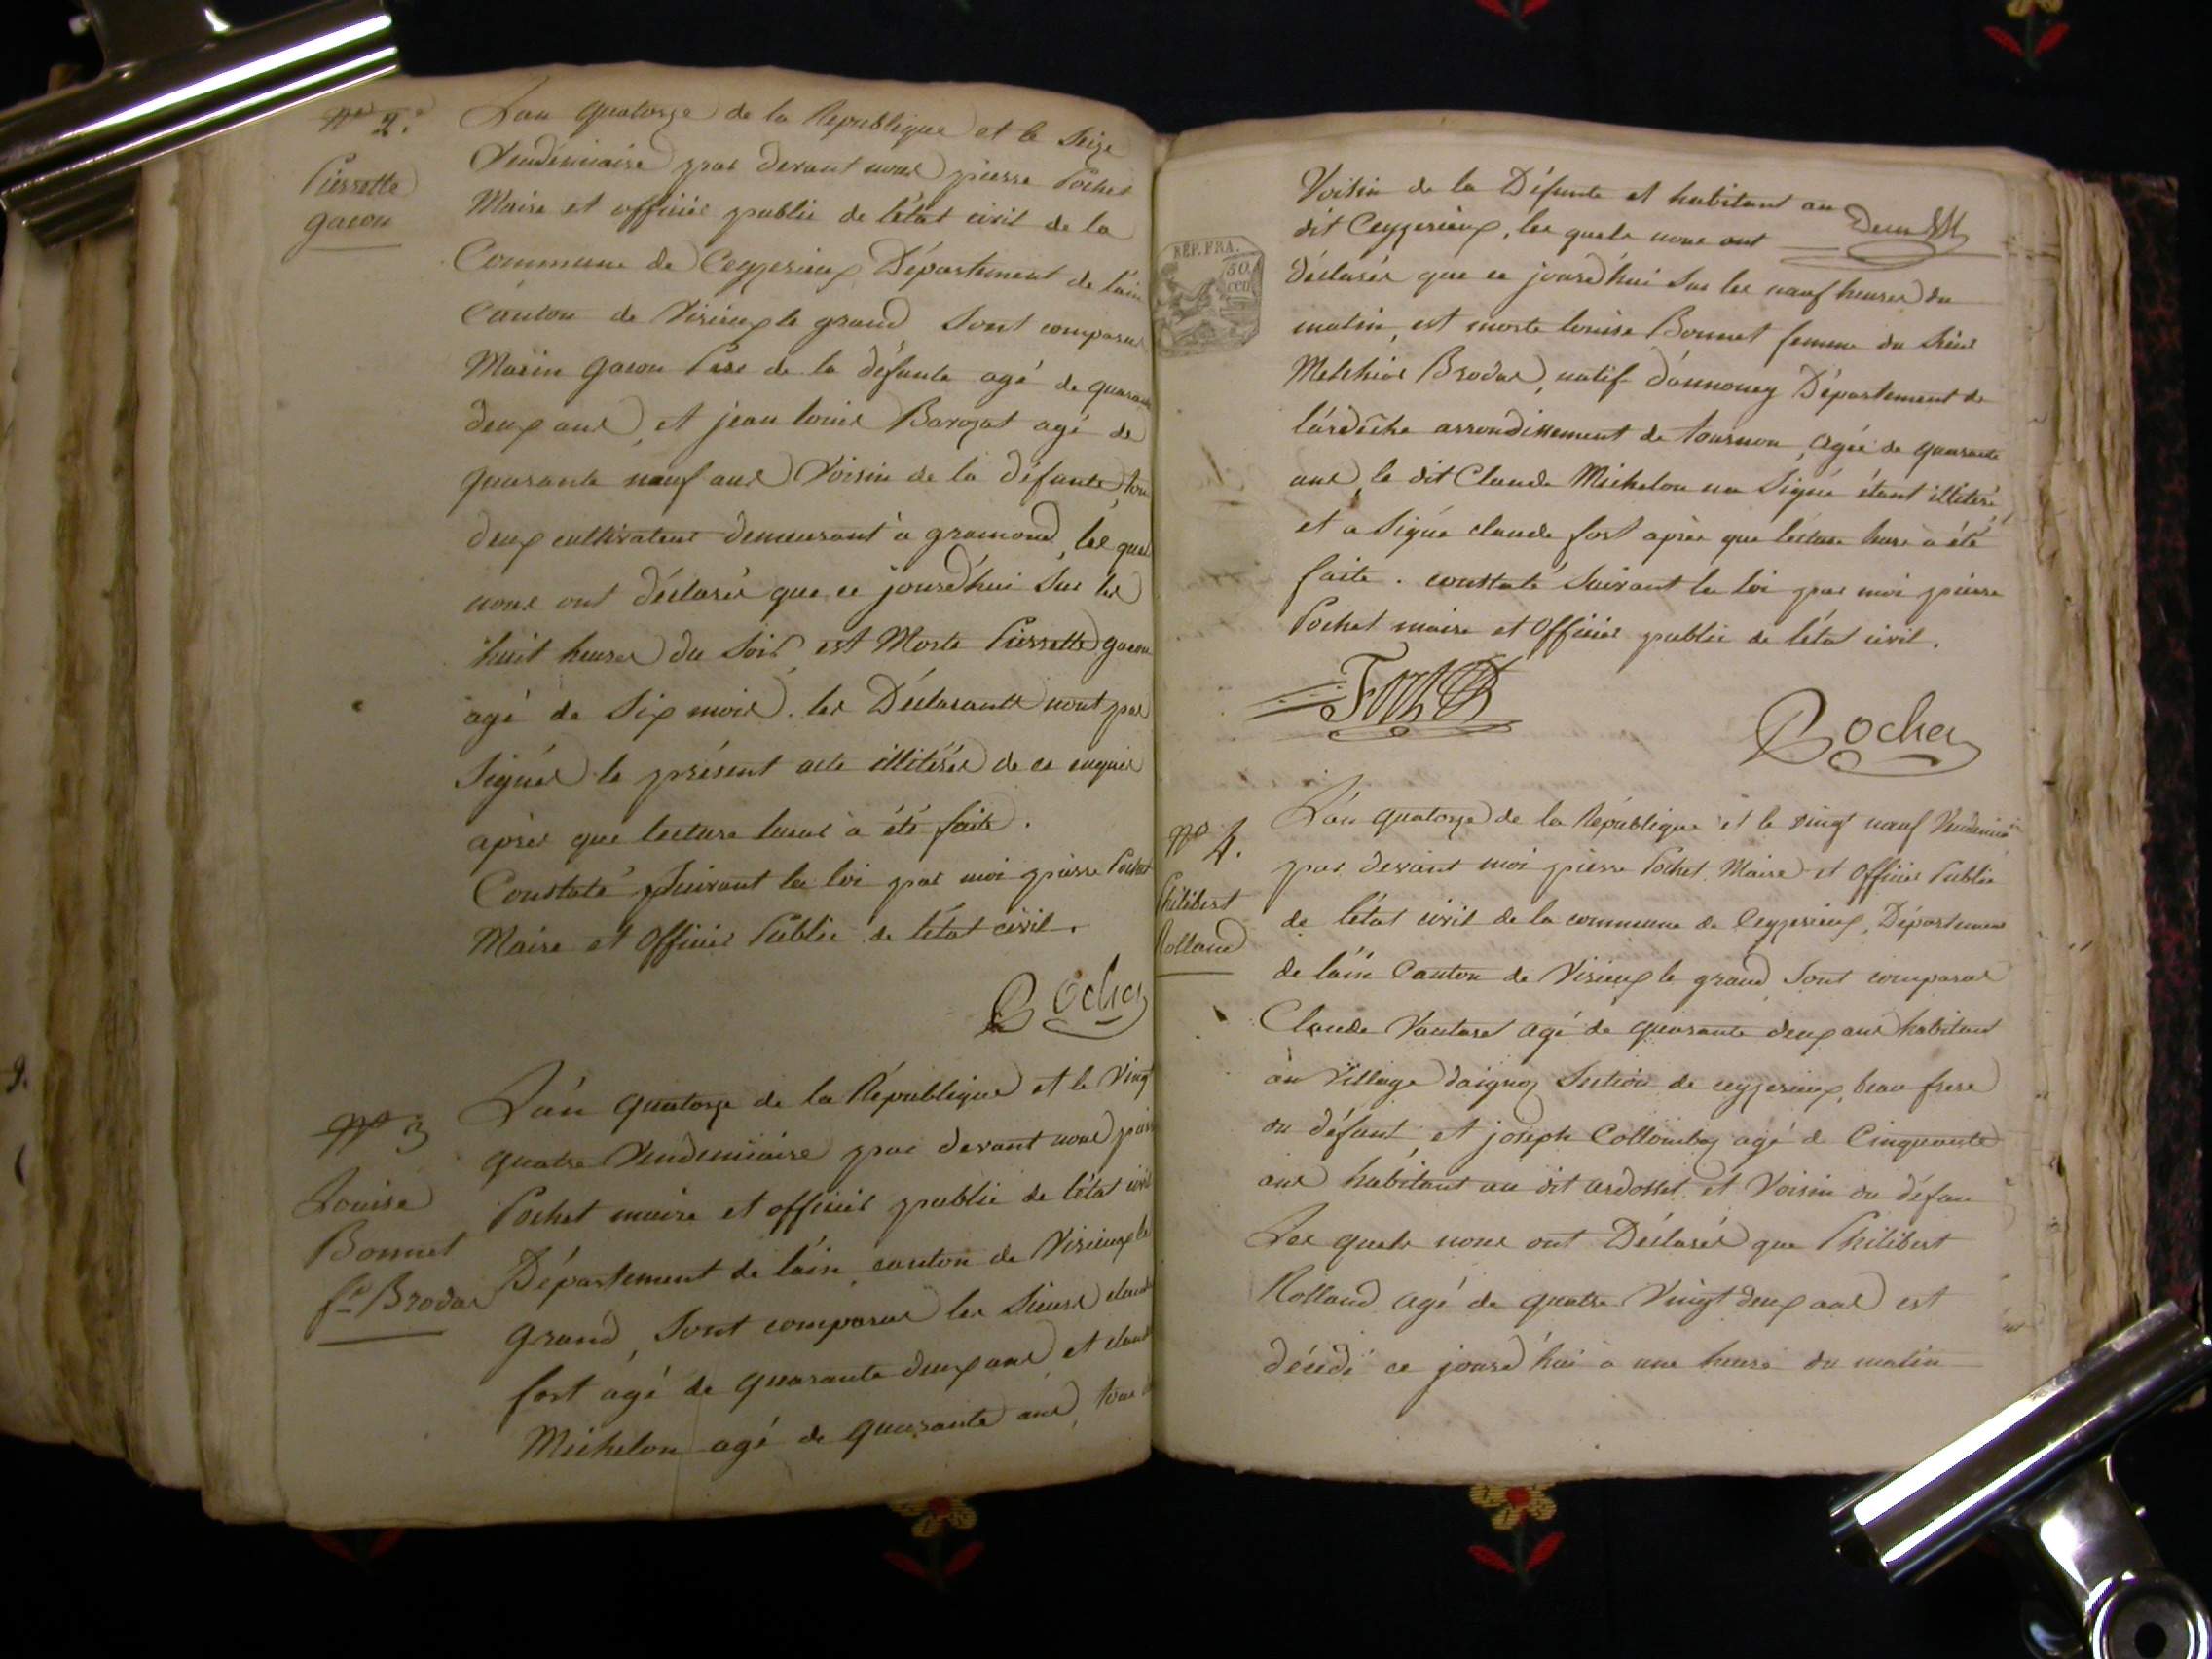 No 2.
Pierrette
gacon
L'an quatorze de la Republique et le Seize
Vendemiaire par devant nous pierre Pochet
Maire et officier public de l'état civil de la
Commune de Ceyzerieux Département de l'ain
Canton de Virieux le grand Sont comparus
Marin gacon Pere de la défunte agé de quarante
deux ans, et jean Louis Barozat agé de
quarante neuf ans Voisin de la défunte, tous
deux cultivateurs demeurant à gramond, les quels
nous ont déclarés que ce jourd'hui Sur les
huit heures du Soir est Morte Pierrette gacon
agé de Six mois. les Déclarants n'ont pas
Signés le présent acte illitérés de ce enquis
après que lecture leurs à été faite.
Constaté Suivant la loi par moi pierre Pochet
Maire et Officier Public de l'état civil.
Pochet
No 3
Louise
Bonnet
fe Brodar
L'an quatorze de la République et le Vingt
quatre Vendemiaire par devant nous pierre
Pochet maire et officier public de l'état civil
Département de l'ain canton de Virieux le
grand, Sont comparus les Sieurs claude
fort agé de quarante deux ans et claude
Michelon agé de quarante ans, tous
Voisin de la Défunte et habitant au
dit Ceyzerieux, les quels nous ont
déclarés que ce jourd'hui Sur les neuf heures du
matin, est morte Louise Bonnet femme du Sieur
Melchior Brodar, natif d'annoney Département de
l'ardêche arrondissement de tournon, agée de quarante
ans, le dit Claude Michelon na Signé étant illitéré,
et a Signé claude fort après que lecture leurs à été
faite. constaté Suivant la loi par moi pierre
Pochet maire et Officier public de l'état civil.
Fort
Pochet
REP. FRA.
50
cen
No 4.
Philibert
Rolland
L'an quatorze de la République et le vingt neuf Vendemiaire
par devant moi pierre Pochet Maire et Officier Public
de l'état civil de la commune de Ceyzerieux, Département
de l'ain Canton de Virieux le grand Sont comparus
Claude Vautaret agé de quarante deux ans habitant
au Village d'aignoz Section de ceyzerieux, beau frere
du défunt, et joseph Collombaz agé de Cinquante
ans habitant au dit ardosset et Voisin du défun
Les quels nous ont Déclarés que Philibert
Rolland agé de quatre Vingt deux ans est
décédé ce jourd'hui à une heure du matin